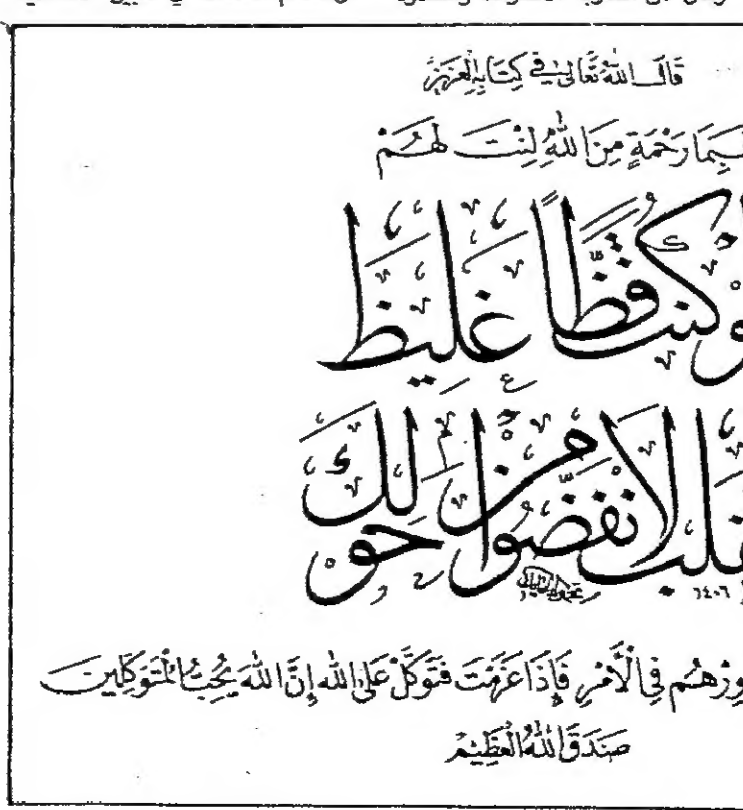 قال الله تعالى في كتابه العزيز
بما رحمة من الله لنت لهم
وكنت فظا غليظ
لانفضوا من حولك
١٤٠٦
فِي الْأَمْرِ فَإِذَا عَزَمْتَ فَتَوَكَّلْ عَلَى اللهِ إِنَّ اللهَ يُحِبُّ الْمُتَوَكِّلِينَ
صَدَقَ اللهُ الْعَظِيمُ